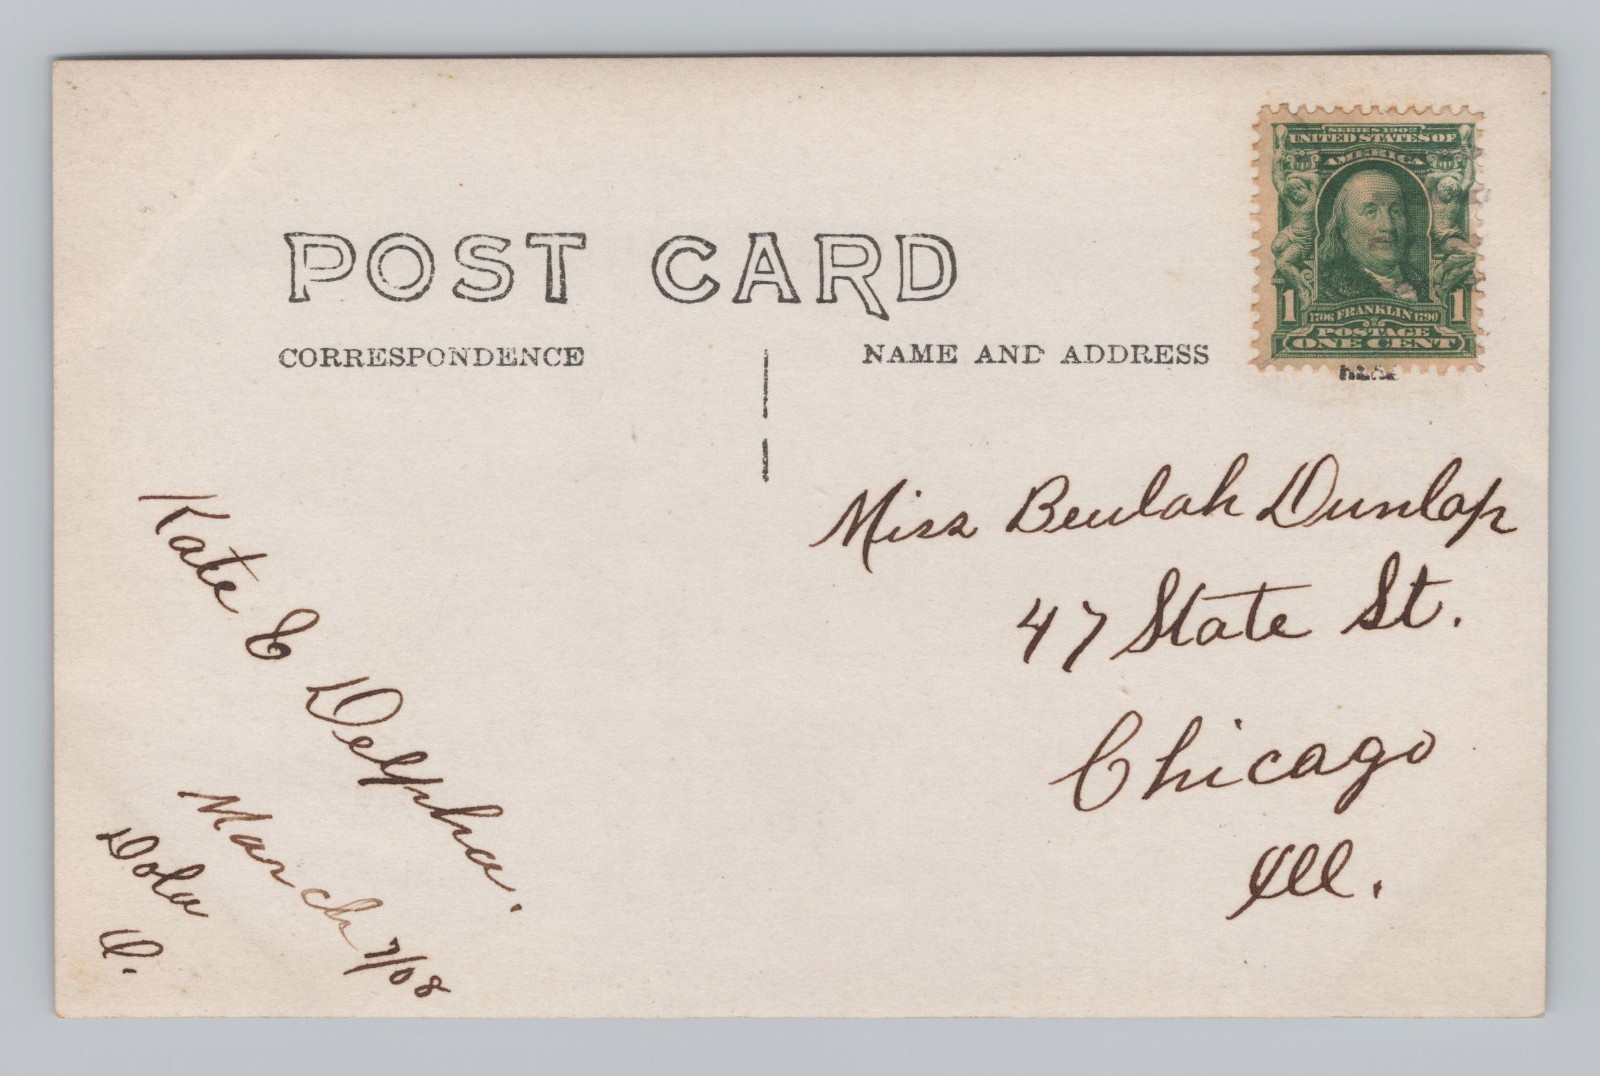 SERIES 1902
UNITED STATES OF
AMERICA
1 1706 FRANKLIN 1790 1
POSTAGE
ONE CENT
POST CARD
CORRESPONDENCE
NAME AND ADDRESS
Kate E Delpha.
March 7/08
Dola
O.
Miss Beulah Dunlap
47 State St.
Chicago
Ill.